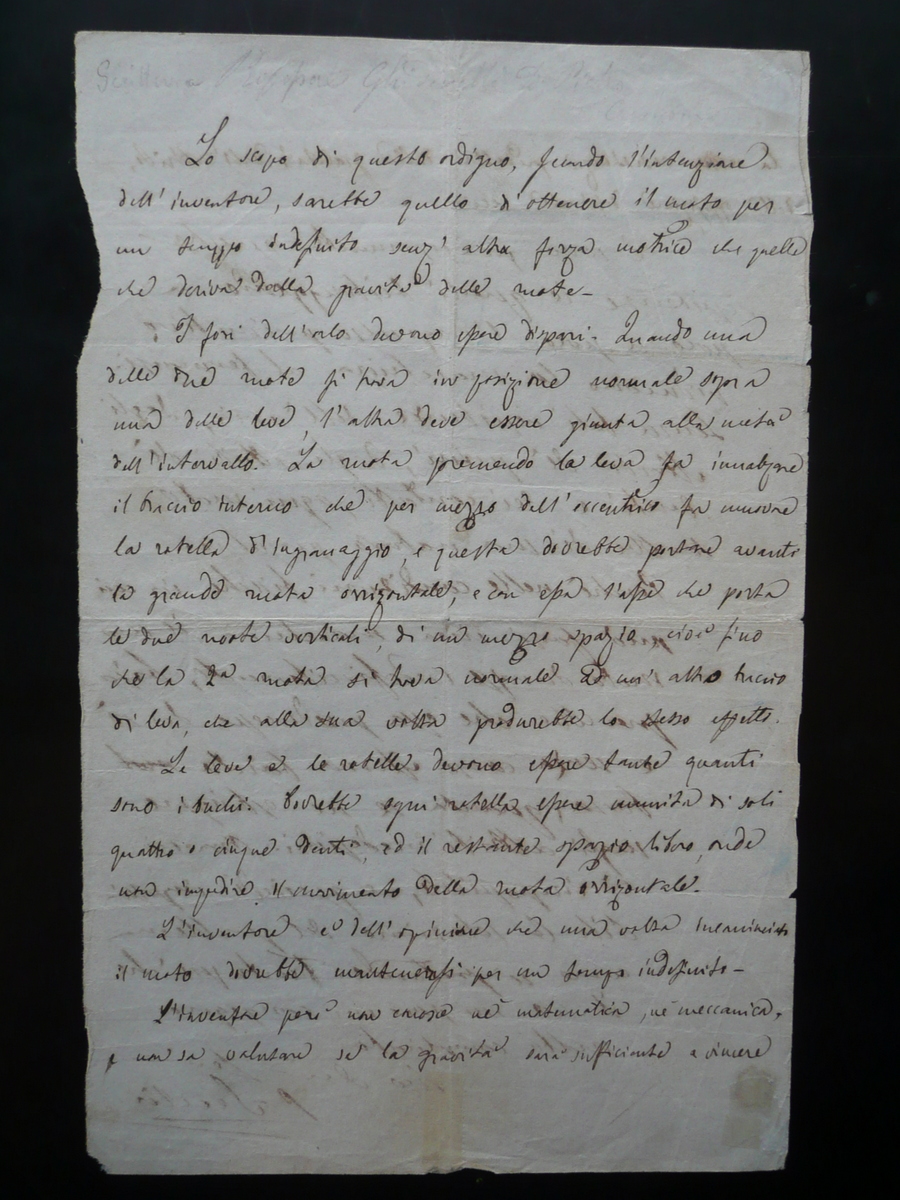 Lo scopo di questo ordigno, secondo l'intenzione
dell'inventore, sarebbe quello d'ottenere il moto per
un tempo indefinito senz'altra forza motrice che quella
che deriva dalla gravità delle ruote -
I fori dell'orlo devono essere dispari. Quando una
delle due ruote si trova in posizione normale sopra
una delle leve, l'altra deve essere giunta alla metà
dell'intervallo. La ruota premendo la leva fa innalzare
il braccio interno che per mezzo dell'eccentrico fa muovere
la rotella d'ingranaggio, e questa dovrebbe portare avanti
la grande ruota orrizontale, e con essa l'asse che porta
le due ruote verticali, di un mezzo spazio, cioè fino
che la 2a ruota si trova normale ad un'altro braccio
di leva, che alla sua volta produrebbe lo stesso effetto.
Le leve e le rotelle devono essere tante quanti
sono i buchi. Dovrebbe ogni rotella essere munita di soli
quattro o cinque denti, ed il restante spazio libero, onde
non impedire il movimento della ruota orrizontale.
L'inventore è dell'opinione che una volta incominciato
il moto dovrebbe mantenersi per un tempo indefinito -
L'inventore però non conosce nè matematica, nè meccanica,
e non sa valutare se la gravità sarà sufficiente a vincere